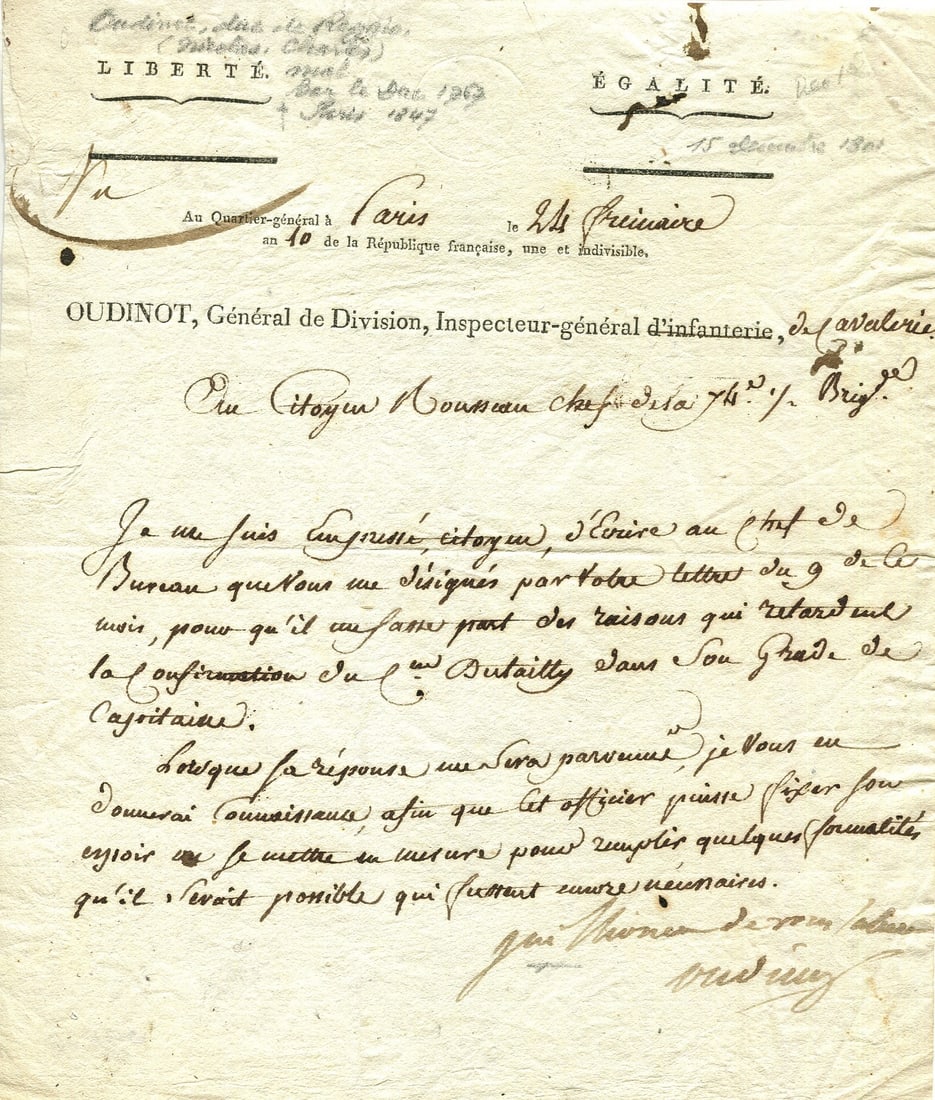 Oudinot, duc de Reggio.
(Nicolas, Charles)
mal
Bar le Duc 1767
† Paris 1847
LIBERTÉ.
ÉGALITÉ.
15 décembre 1801
Au Quartier-général à Paris le 24 frimaire
an 10 de la République française, une et indivisible.
OUDINOT, Général de Division, Inspecteur-général d'infanterie, de Cavalerie.
Au Citoyen Rousseau chef de la 74.e 1/2 Brig.de
Je me suis Empressé, citoyen, d'Ecrire au Chef de
Bureau que Vous me désignés par Votre lettre du 9 de Ce
mois, pour qu'il me fasse part des raisons qui retardent
la Confirmation du C.en Dutailly dans Son Grade de
Capitaine.
Lorsque sa réponse me Sera parvenue, je Vous en
donnerai Connaissance, afin que Cet officier puisse fixer son
espoir ou se mettre en mesure pour remplir quelques formalités
qu'il Serait possible qui fussent encore nécessaires.
j'ai l'honneur de vous saluer
oudinot